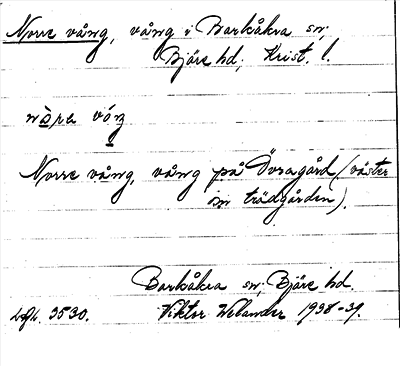 Norre vång, vång i Barkåkra sn,
Bjäre hd, Krist. l.
Norre vång, vång på Övragård (väster
om trädgården).
Barkåkra sn, Bjäre hd.
3530. Viktor Welander 1938-39.